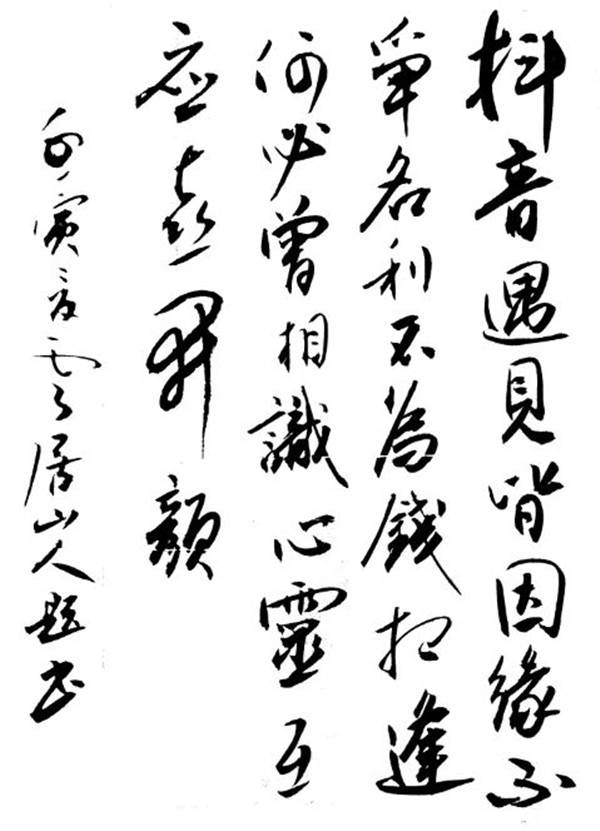 抖音遇見皆因緣不
爭名利不為錢相逢
何必曾相識心靈互
应喜開顏
寅夏雲居山人題书